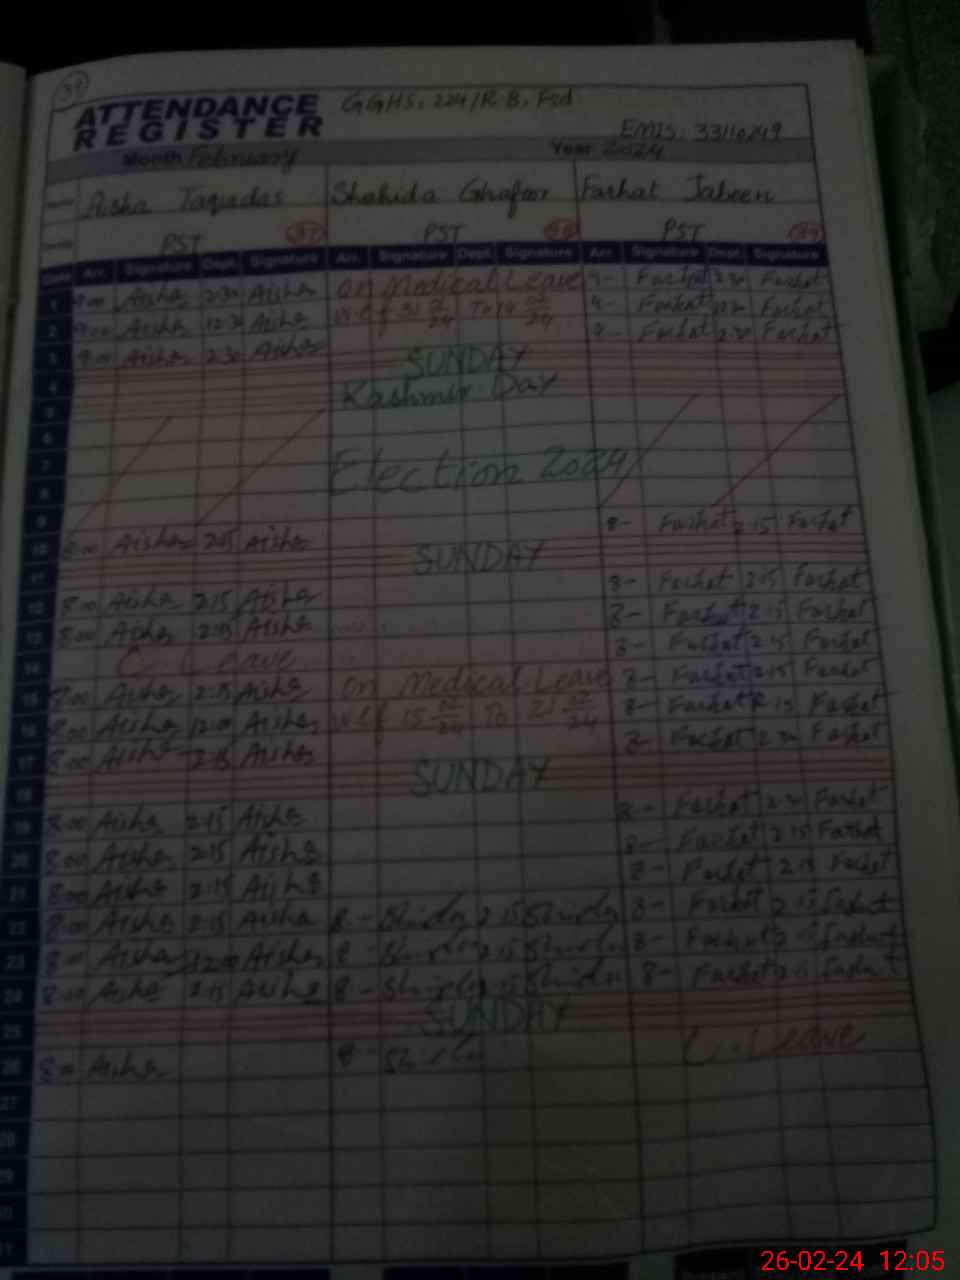 39
ATTENDANCE
REGISTER
GGHS. 224/R.B, Fsd
EMIS: 33110249
Month February Year 2024
Aisha Taqadas Shahida Ghafoor Farhat Jabeen
PST 37 PST 38 PST 39
Date Arr. Signature Dept. Signature Arr. Signature Dept. Signature Arr. Signature Dept. Signature
1 9:00 Aisha 2:30 Aisha On Medical Leave 9- Farhat 2:30 Farhat
2 9:00 Aisha 12:30 Aisha w.e.f 31 01/24 To 14 02/24 9- Farhat 12:30 Farhat
3 9:00 Aisha 2:30 Aisha 9- Farhat 2:30 Farhat
4 SUNDAY
5 Kashmir Day
6
7 Election 2024
8
9
10 8:00 Aisha 2:15 Aisha 8- Farhat 2:15 Farhat
11 SUNDAY
12 8:00 Aisha 2:15 Aisha 8- Farhat 2:15 Farhat
13 8:00 Aisha 2:15 Aisha 8- Farhat 2:15 Farhat
14 C. Leave 8- Farhat 2:15 Farhat
15 8:00 Aisha 2:15 Aisha On Medical Leave 8- Farhat 2:15 Farhat
16 8:00 Aisha 12:00 Aisha w.e.f 15 02/24 To 21 02/24 8- Farhat 2:15 Farhat
17 8:00 Aisha 2:15 Aisha 8- Farhat 2:30 Farhat
18 SUNDAY
19 8:00 Aisha 2:15 Aisha 8- Farhat 2:30 Farhat
20 8:00 Aisha 2:15 Aisha 8- Farhat 2:15 Farhat
21 8:00 Aisha 2:15 Aisha 8- Farhat 2:15 Farhat
22 8:00 Aisha 2:15 Aisha 8- 2:15 8- Farhat 2:15 Farhat
23 8:00 Aisha 12:00 Aisha 8- 2:15 8- Farhat Farhat
24 8:00 Aisha 2:15 Aisha 8- 2:15 8- Farhat 2:15 Farhat
25 SUNDAY
26 8:00 Aisha 8- C. Leave
27
28
29
30
31
26-02-24 12:05